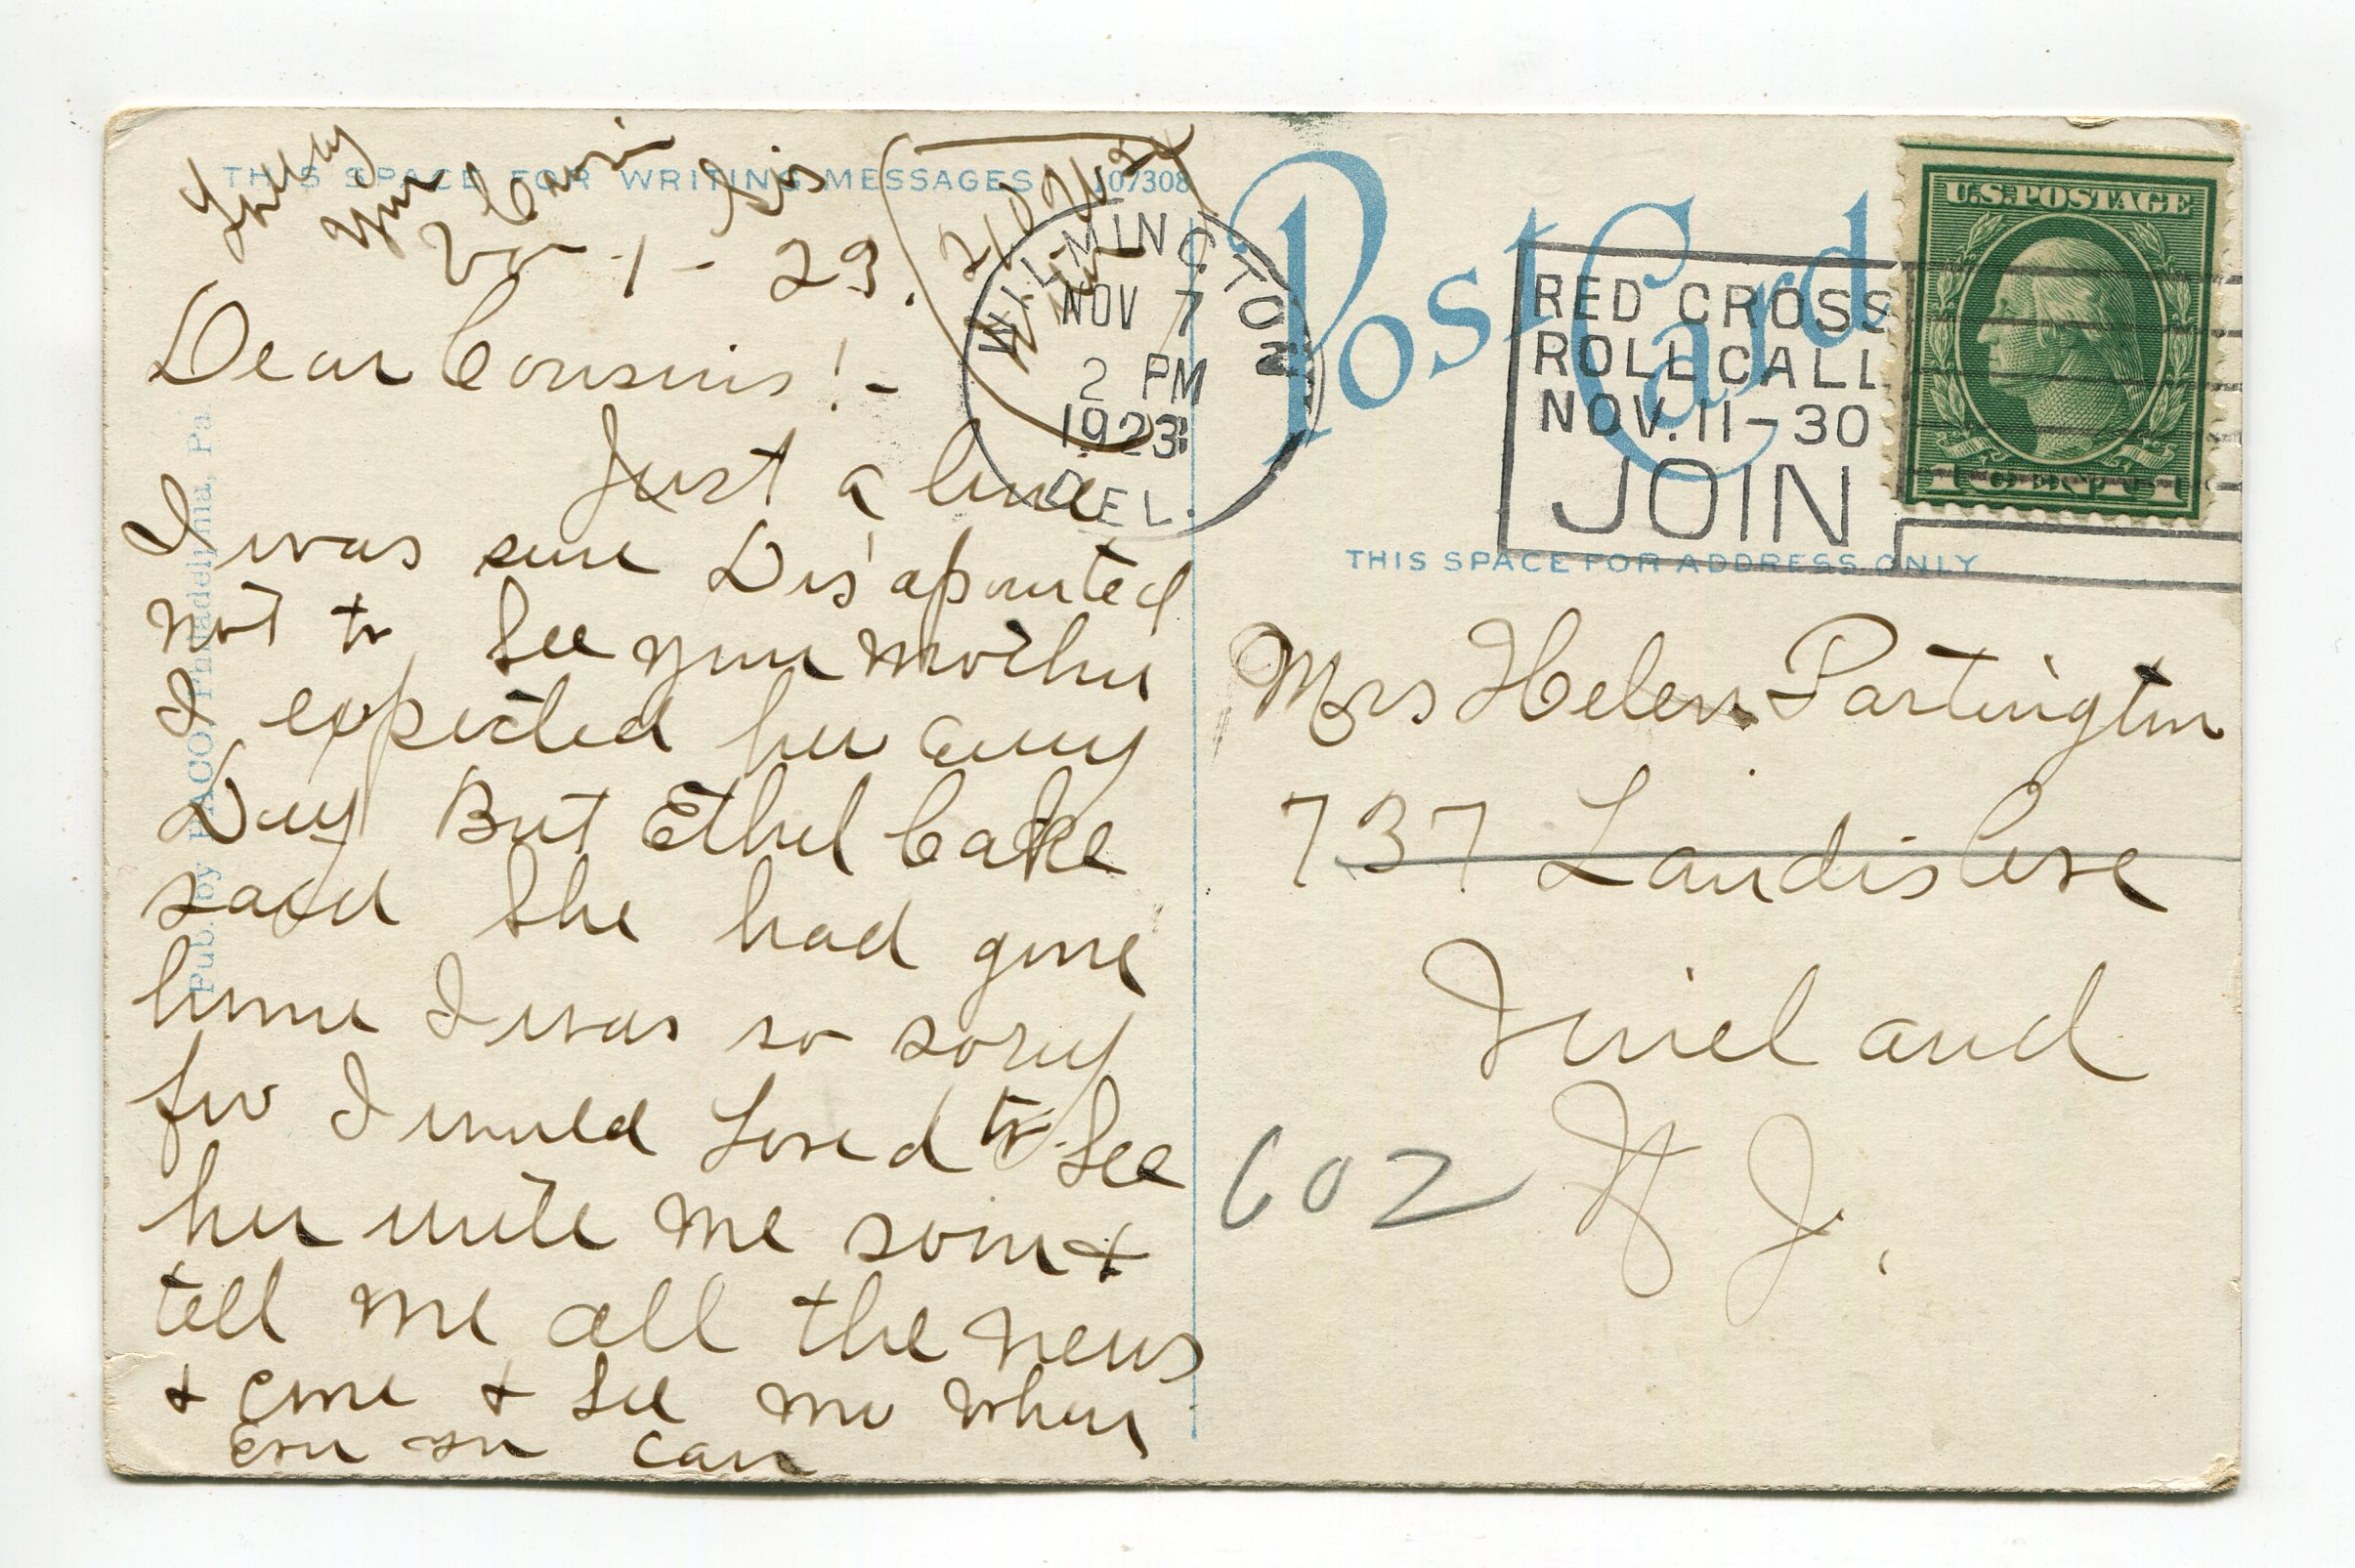 THIS SPACE FOR WRITING MESSAGES
107308
Your Cousin
1 - 23.
Dear Cousins! -
Just a line
I was sure Dis'apointed
not to See your mother
I expected her every
Day But Ethel Cake
said She had gone
home I was so sorry
for I would Loved to See
her write me soon +
tell me all the news
+ come + See me when
ever you can
Pub. by PACCO, Philadelphia, Pa.
WILMINGTON
NOV 7
2 PM
1923
DEL.
Post Card
RED CROSS
ROLL CALL
NOV. 11-30
JOIN
U.S. POSTAGE
1 CENT 1
THIS SPACE FOR ADDRESS ONLY
Mrs Helen Partington
737 Landis Ave
Vineland
N J.
602